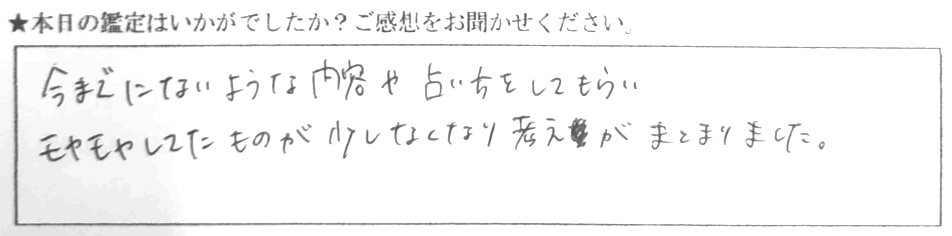 ★本日の鑑定はいかがでしたか？ご感想をお聞かせください。
今までにないような内容や占い方をしてもらい
モヤモヤしてたものが少しなくなり考えがまとまりました。